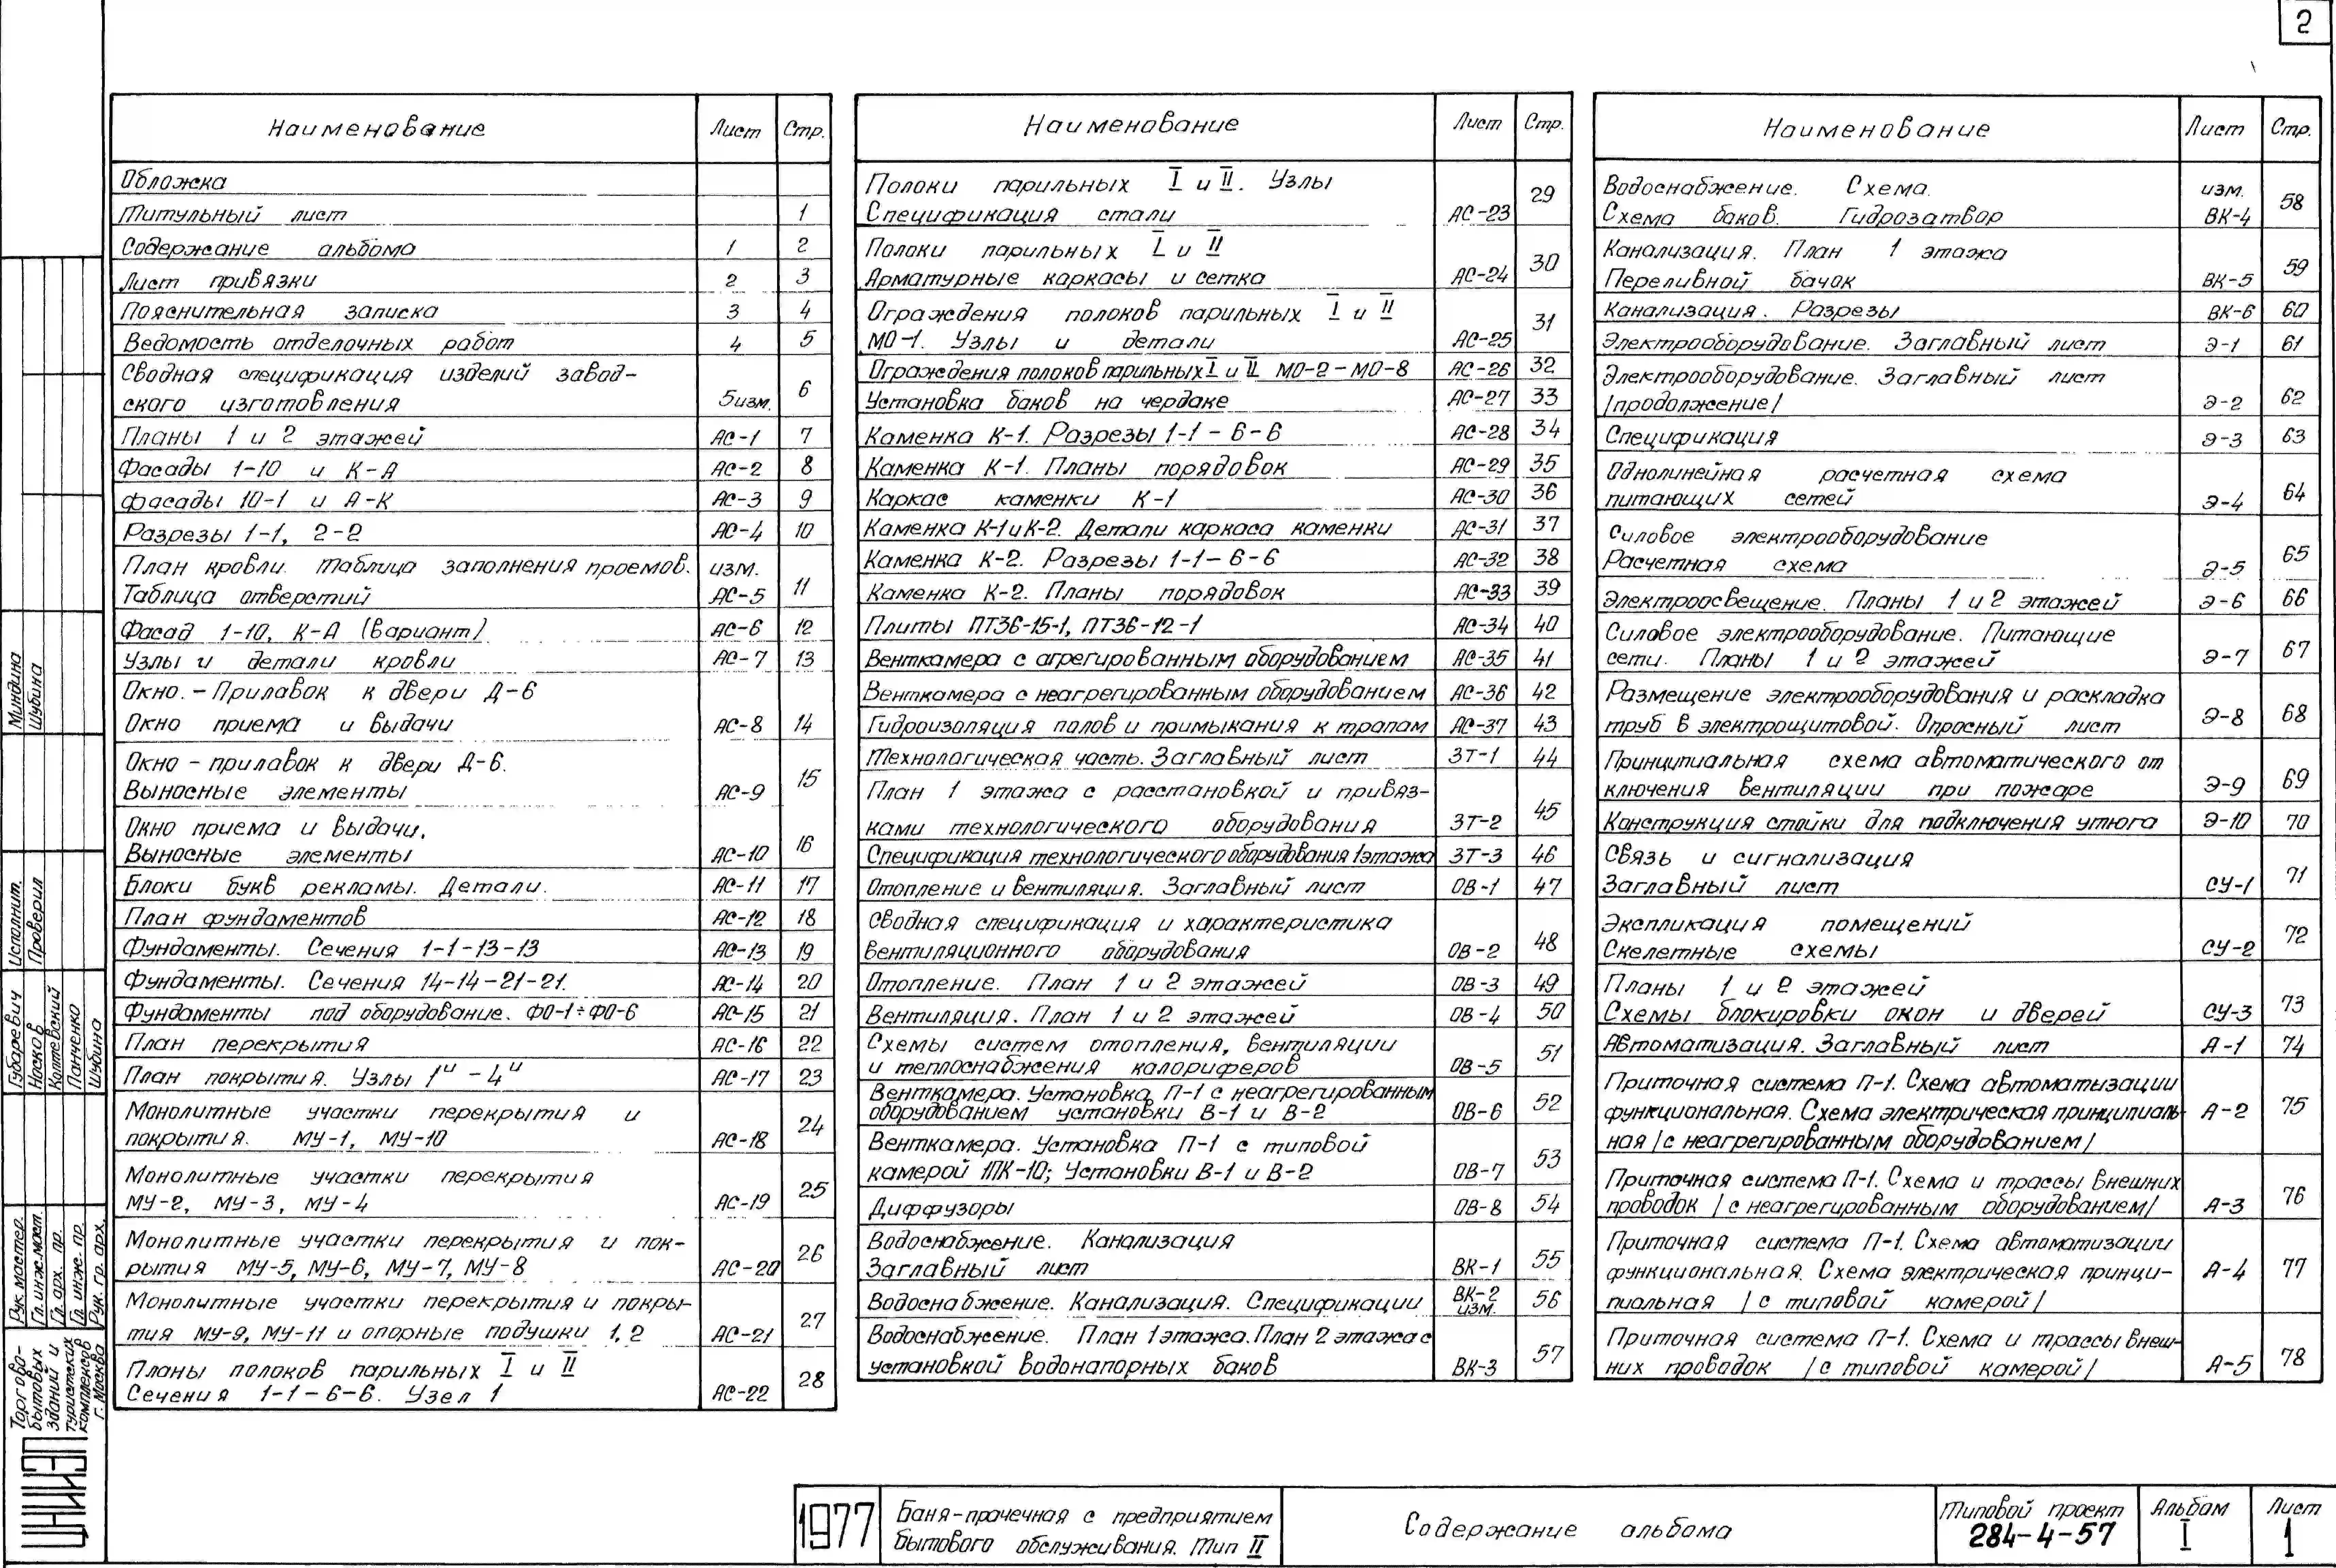 2
Наименование Лист Стр.
Обложка
Титульный лист 1
Содержание альбома 1 2
Лист привязки 2 3
Пояснительная записка 3 4
Ведомость отделочных работ 4 5
Сводная спецификация изделий завод-
ского изготовления 5изм. 6
Планы 1 и 2 этажей АС-1 7
Фасады 1-10 и К-А АС-2 8
Фасады 10-1 и А-К АС-3 9
Разрезы 1-1, 2-2 АС-4 10
План кровли. Таблица заполнения проемов. изм.
Таблица отверстий АС-5 11
Фасад 1-10, К-А (вариант) АС-6 12
Узлы и детали кровли АС-7 13
Окно.-Прилавок к двери Д-6
Окно приема и выдачи АС-8 14
Окно - прилавок к двери Д-6.
Выносные элементы АС-9 15
Окно приема и выдачи.
Выносные элементы АС-10 16
Блоки букв рекламы. Детали. АС-11 17
План фундаментов АС-12 18
Фундаменты. Сечения 1-1-13-13 АС-13 19
Фундаменты. Сечения 14-14-21-21. АС-14 20
Фундаменты под оборудование. ФО-1÷ФО-6 АС-15 21
План перекрытия АС-16 22
План покрытия. Узлы 1" - 4" АС-17 23
Монолитные участки перекрытия и
покрытия. МУ-1, МУ-10 АС-18 24
Монолитные участки перекрытия
МУ-2, МУ-3, МУ-4 АС-19 25
Монолитные участки перекрытия и пок-
рытия МУ-5, МУ-6, МУ-7, МУ-8 АС-20 26
Монолитные участки перекрытия и покры-
тия МУ-9, МУ-11 и опорные подушки 1, 2 АС-21 27
Планы полоков парильных I и II
Сечения 1-1-6-6. Узел 1 АС-22 28
Наименование Лист Стр.
Полоки парильных I и II. Узлы
Спецификация стали АС-23 29
Полоки парильных I и II
Арматурные каркасы и сетка АС-24 30
Ограждения полоков парильных I и II
МО-1. Узлы и детали АС-25 31
Ограждения полоков парильных I и II МО-2-МО-8 АС-26 32
Установка баков на чердаке АС-27 33
Каменка К-1. Разрезы 1-1-6-6 АС-28 34
Каменка К-1. Планы порядовок АС-29 35
Каркас каменки К-1 АС-30 36
Каменка К-1 и К-2. Детали каркаса каменки АС-31 37
Каменка К-2. Разрезы 1-1-6-6 АС-32 38
Каменка К-2. Планы порядовок АС-33 39
Плиты ПТ36-15-1, ПТ36-12-1 АС-34 40
Венткамера с агрегированным оборудованием АС-35 41
Венткамера с неагрегированным оборудованием АС-36 42
Гидроизоляция полов и примыкания к трапам АС-37 43
Технологическая часть. Заглавный лист ЗТ-1 44
План 1 этажа с расстановкой и привяз-
ками технологического оборудования ЗТ-2 45
Спецификация технологического оборудования 1этажа ЗТ-3 46
Отопление и вентиляция. Заглавный лист ОВ-1 47
Сводная спецификация и характеристика
вентиляционного оборудования ОВ-2 48
Отопление. План 1 и 2 этажей ОВ-3 49
Вентиляция. План 1 и 2 этажей ОВ-4 50
Схемы систем отопления, вентиляции
и теплоснабжения калориферов ОВ-5 51
Венткамера. Установка П-1 с неагрегированным
оборудованием установки В-1 и В-2 ОВ-6 52
Венткамера. Установка П-1 с типовой
камерой 1ПК-10; Установки В-1 и В-2 ОВ-7 53
Диффузоры ОВ-8 54
Водоснабжение. Канализация
Заглавный лист ВК-1 55
Водоснабжение. Канализация. Спецификации ВК-2 изм. 56
Водоснабжение. План 1этажа. План 2 этажа с
установкой водонапорных баков ВК-3 57
Наименование Лист Стр.
Водоснабжение. Схема. изм.
Схема баков. Гидрозатвор ВК-4 58
Канализация. План 1 этажа
Переливной бачок ВК-5 59
Канализация. Разрезы ВК-6 60
Электрооборудование. Заглавный лист Э-1 61
Электрооборудование. Заглавный лист
/продолжение/ Э-2 62
Спецификация Э-3 63
Однолинейная расчетная схема
питающих сетей Э-4 64
Силовое электрооборудование
Расчетная схема Э-5 65
Электроосвещение. Планы 1 и 2 этажей Э-6 66
Силовое электрооборудование. Питающие
сети. Планы 1 и 2 этажей Э-7 67
Размещение электрооборудования и раскладка
труб в электрощитовой. Опросный лист Э-8 68
Принципиальная схема автоматического от
ключения вентиляции при пожаре Э-9 69
Конструкция стойки для подключения утюга Э-10 70
Связь и сигнализация
Заглавный лист СУ-1 71
Экспликация помещений
Скелетные схемы СУ-2 72
Планы 1 и 2 этажей
Схемы блокировки окон и дверей СУ-3 73
Автоматизация. Заглавный лист А-1 74
Приточная система П-1. Схема автоматызации
функциональная. Схема электрическая принципиаль-
ная /с неагрегированным оборудованием/ А-2 75
Приточная система П-1. Схема и трассы внешних
проводок /с неагрегированным оборудованием/ А-3 76
Приточная система П-1. Схема автоматизации
функциональная. Схема электрическая принци-
пиальная /с типовой камерой/ А-4 77
Приточная система П-1. Схема и трассы внеш-
них проводок /с типовой камерой/ А-5 78
Миндина
Шубина
Исполнит.
Проверил
Губаревич
Носков
Коптевский
Панченко
Шубина
Рук. мастер.
Гл. инж. маст.
Гл. арх. пр.
Гл. инж. пр.
Рук. гр. арх.
Торгово-
бытовых
зданий и
туристских
комплексов
г. Москва
ЦНИИЭП
1977
Баня-прачечная с предприятием
бытового обслуживания. Тип II
Содержание альбома
Типовой проект
284-4-57
Альбом
I
Лист
1